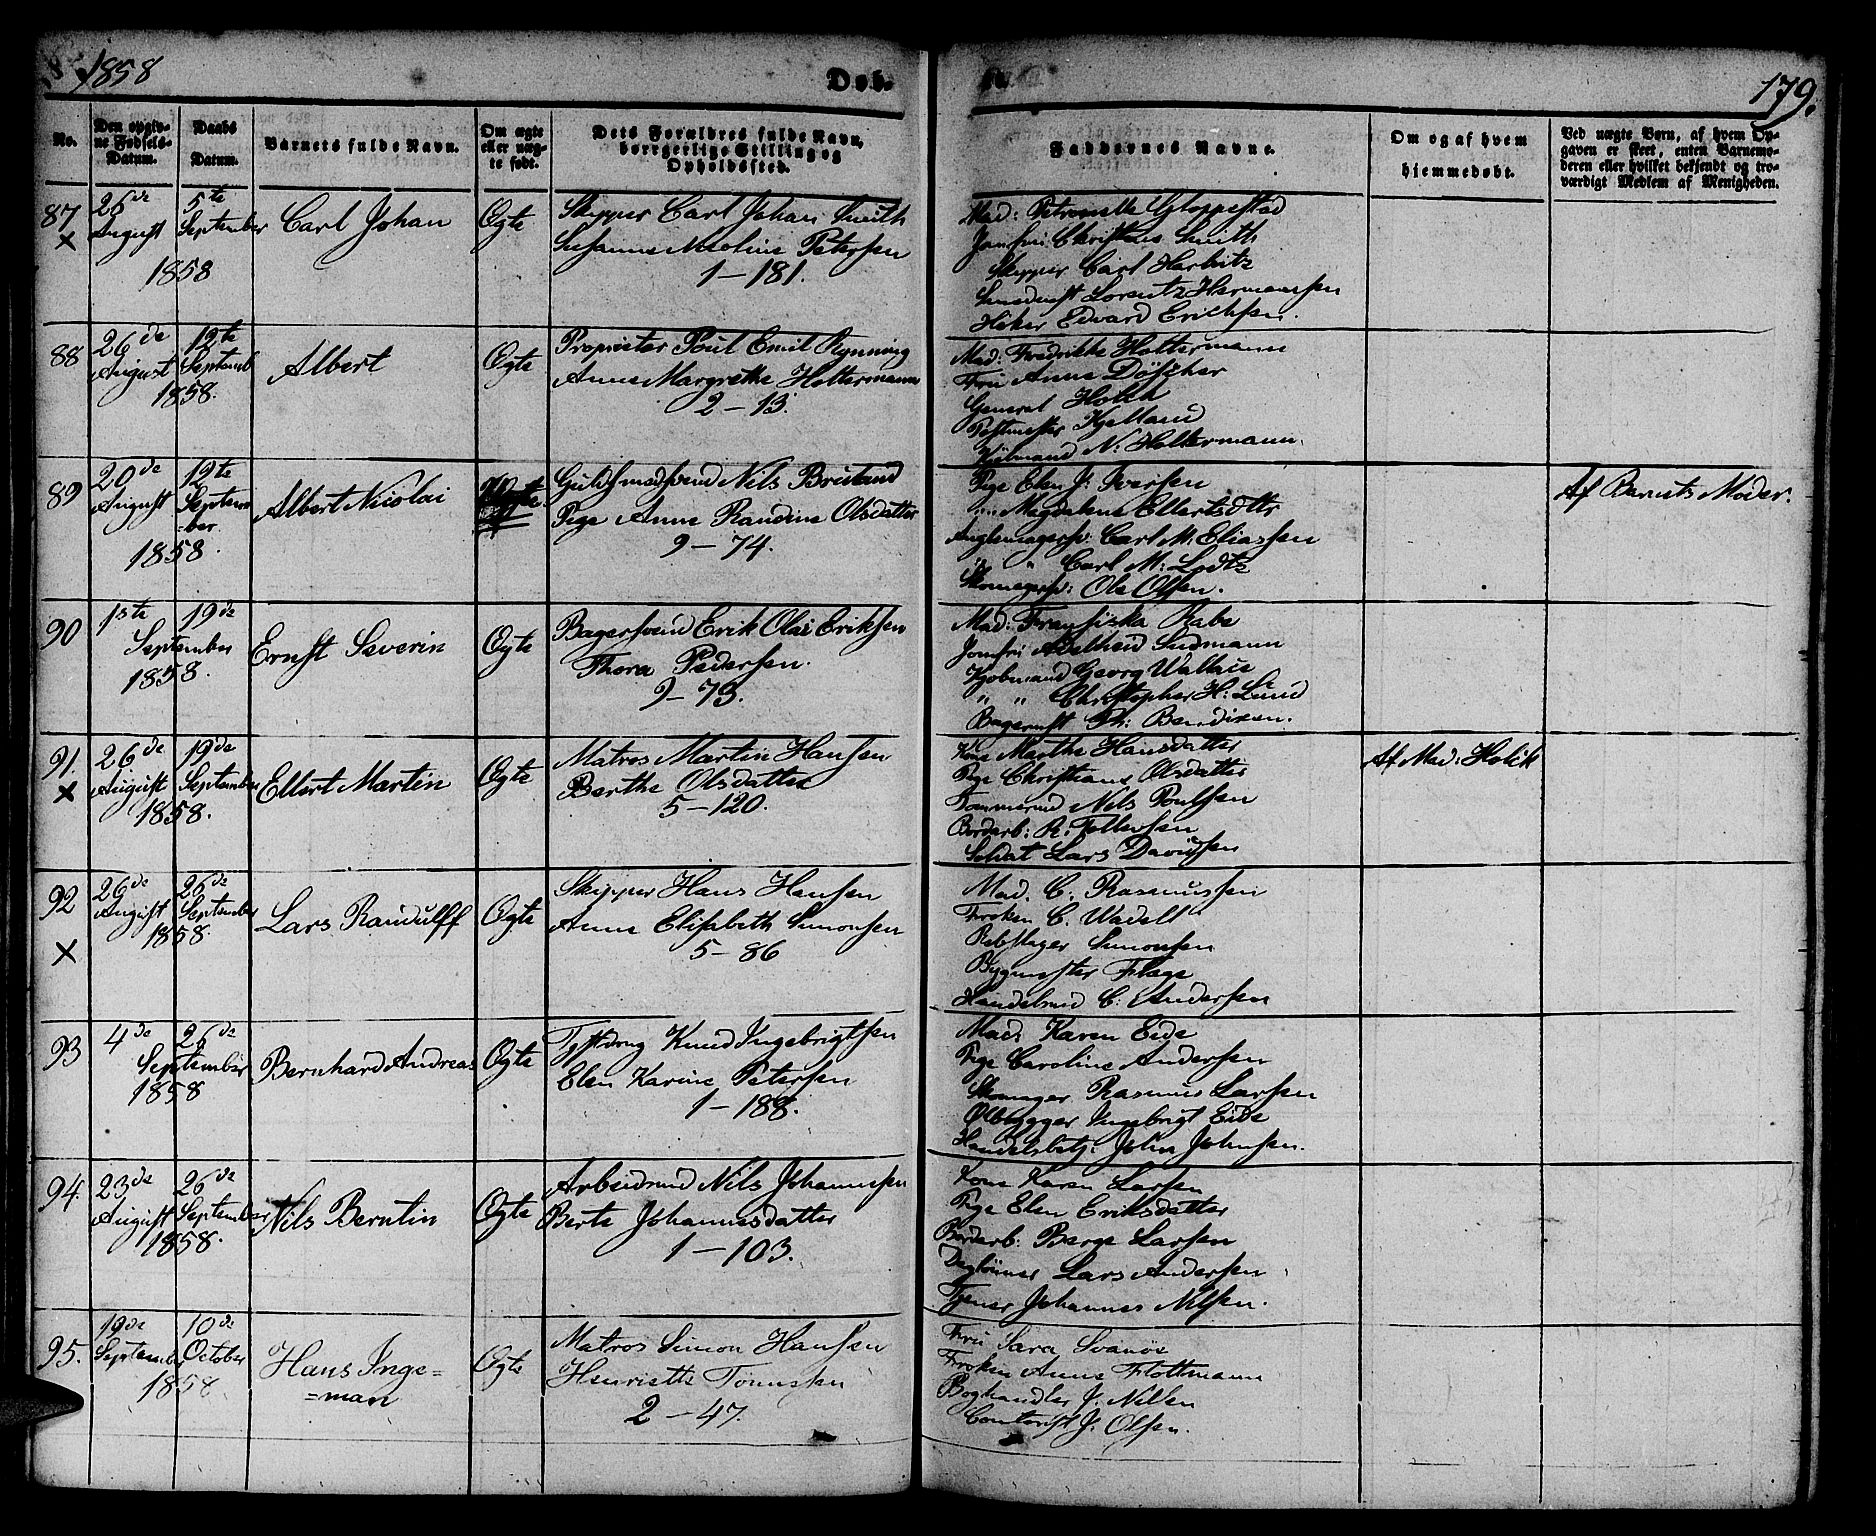 1858
Døb.
179.
No.
Den opgiv-
ne Fødsels-
Datum.
Daabs
Datum.
Barnets fulde Navn.
Om ægte
eller uæg-
te født.
Dets Forældres fulde Navn,
borgerlige Stilling og
Opholdssted.
Faddernes Navne.
Om og af hvem
hjemmedøbt.
Ved uægte Børn, af hvem Op-
gaven er skeet, enten Barnemo-
deren eller hvilket bekjendt og tro-
værdigt Medlem af Menigheden.
87
×
26de
August
5te
September
1858
Carl Johan
Ægte
Skipper Carl Johan Smith
Susanne Nicoline Petersen
1–181.
Mad: Petronelle Gloppestad
Jomfru Christine Smith
Skipper Carl Harbitz
Lorentz Hermansen
Høker Edvard Erichsen.
88
26de
August
12te
Septemb
1858.
Albert
Ægte
Proprietær Poul Emil Rynning
Anne Margrethe Holtermann
2–13.
Mad: Fredrikke Holtermann
Fru Anne Döscher
General Holck
Postmester Kjelland
Kjøbmand N: Holtermann.
89
20de
August
12te
Septem
=ber.
1858.
Albert Nicolai
Guldsmedsvend Nils Brustand
Pige Anne Randine Olsdatter
9–74.
Pige Elen J: Iversen
" Magdalena Ellertsdttr
Carl M. Eliassen
" " Carl M: Lodtz
Skomagersv: Ole Olsen.
Af Barnets Moder.
90
1ste
19de
September
1858.
Ernst Severin
Ægte
Bagersvend Erik Olai Eriksen
Thora Pedersen.
9–73.
Mad: Fransiska Rabe
Jomfru Adelheid Sudmann
Kjøbmand Georg Wallace
" " Christopher H: Lund
Bagermst Th: Bendixen.
91.
×
26de
August
19de
September
1858.
Ellert Martin
Ægte
Matros Martin Hansen
Berthe Olsdatter
5–120.
Kone Marthe Hansdatter
Pige Christiane Olsdatter
Tømmermd Nils Poulsen
Borderb: R: Tollefsen
Soldat Lars Davidsen
Af Mad: Holck
92
×
26de
August
26de
September
1858.
Lars Randulff
Ægte
Skipper Hans Hansen
Anne Elisabeth Simonsen
5–86
Mad. C. Rasmussen
Frøken C. Wadell
Rebslager Simonsen
Bygmester Flage
Handelsmd C. Andersen
93
4de
26de
September
1858
Bernhard Andreas
Ægte
Knud Ingebrigtsen
Elen Karine Petersen
1–188.
Mad: Karen Eide
Pige Caroline Andersen
Skomager Rasmus Larsen
Ølbrygger Ingebrigt Eide
Handelsbetj: John Johnsen.
94.
23de
August
26de
September
1858.
Nils Berntin
Ægte
Arbeidsmd Nils Johannesen
Berte Johannesdatter
1–103.
Kone Karen Larsen
Pige Elen Eriksdatter
Borderb: Berge Larsen
Dagløner Lars Andersen
Tjener Johannes Nilsen.
95.
19de
Septemb
10de
October
1858
Hans Inge=
=man
Ægte
Matros Simon Hansen
Henriette Tönnesen
2–47.
Fru Sara Svanöe
Frøken Anne Flottmann
Boghandler J. Nilsen
Contorist J. Olsen.